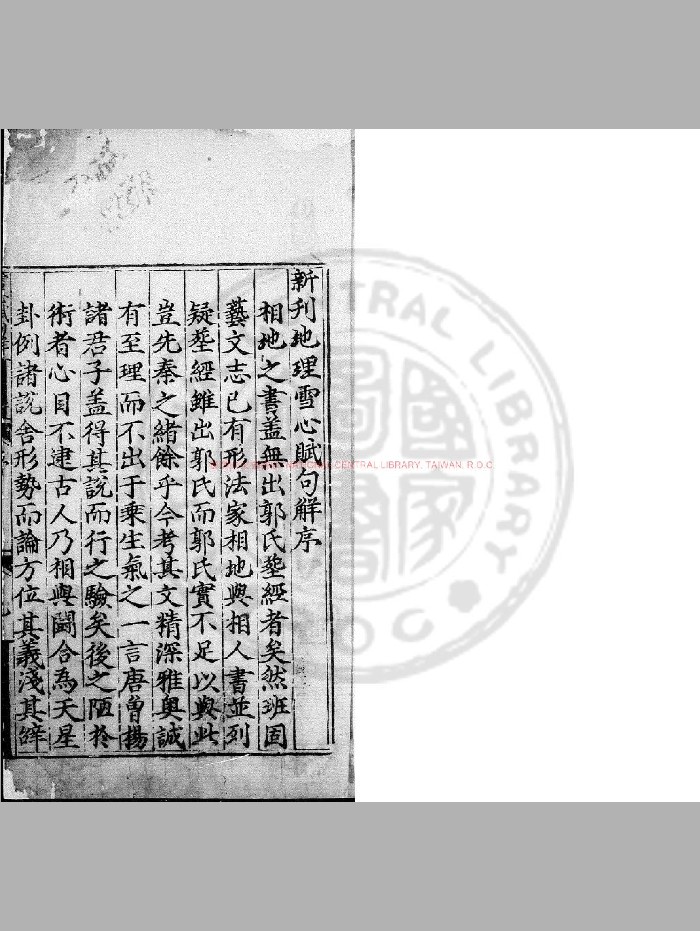 新刋地理雪心賦句解序
相地之書蓋無出郭氏塟經者矣然班固
藝文志已有形法家相地與相人書並列
疑塟經雖出郭氏而郭氏實不足以與此
豈先秦之緒餘乎今考其文精深雅奥誠
有至理而不出于乘生氣之一言唐曾楊
諸君子盖得其說而行之驗矣後之陋於
術者心目不逮古人乃相與闘合為天星
卦例諸說舍形勢而論方位其義淺其辤
NATIONAL CENTRAL LIBRARY, TAIWAN, R.O.C
CENTRAL LIBRARY
ROC